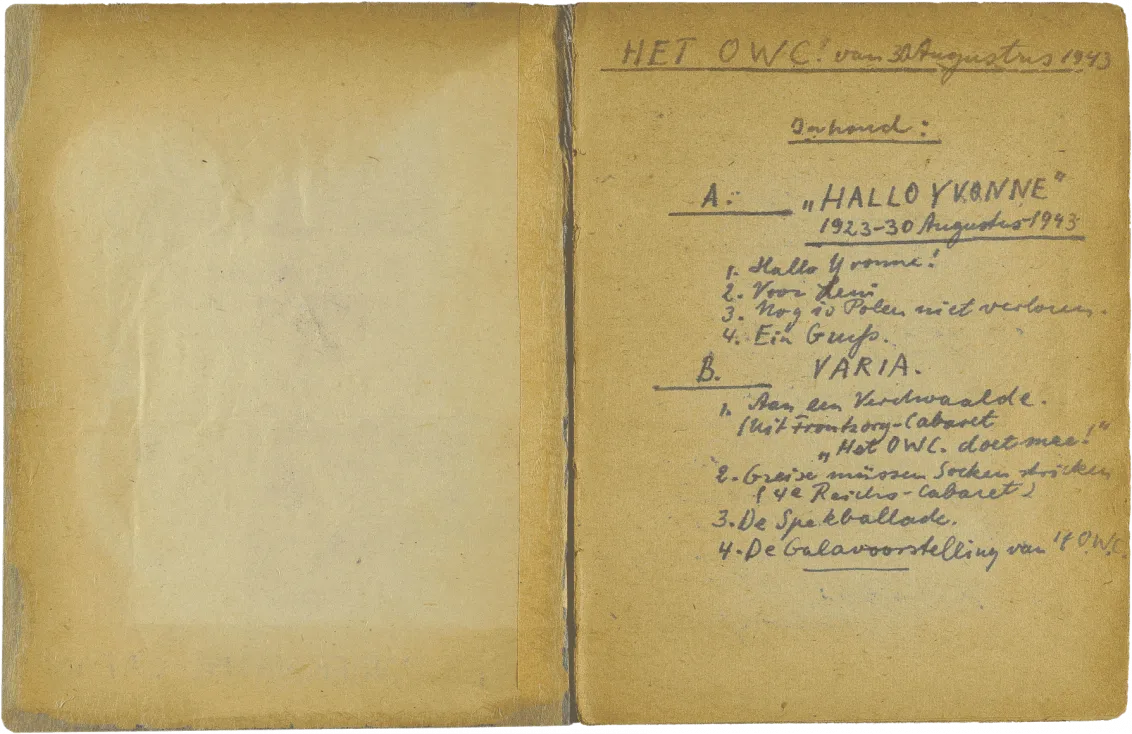 HET OWC! van 30 Augustus 1943
Inhoud:
A: „HALLO YVONNE"
1923-30 Augustus-1943
1. Hallo Yvonne!
2. Voor
3. Nog is Polen niet verloren.
4. Ein Gruß.
B. VARIA.
1. Aan een Verdwaalde.
(Uit Frontzorg-Cabaret
„Het OWC. doet mee!"
2. Greise müssen Socken stricken
(4e Reichs-Cabaret)
3. De Spekballade.
4. De Galavoorstelling van 't O.W.C.